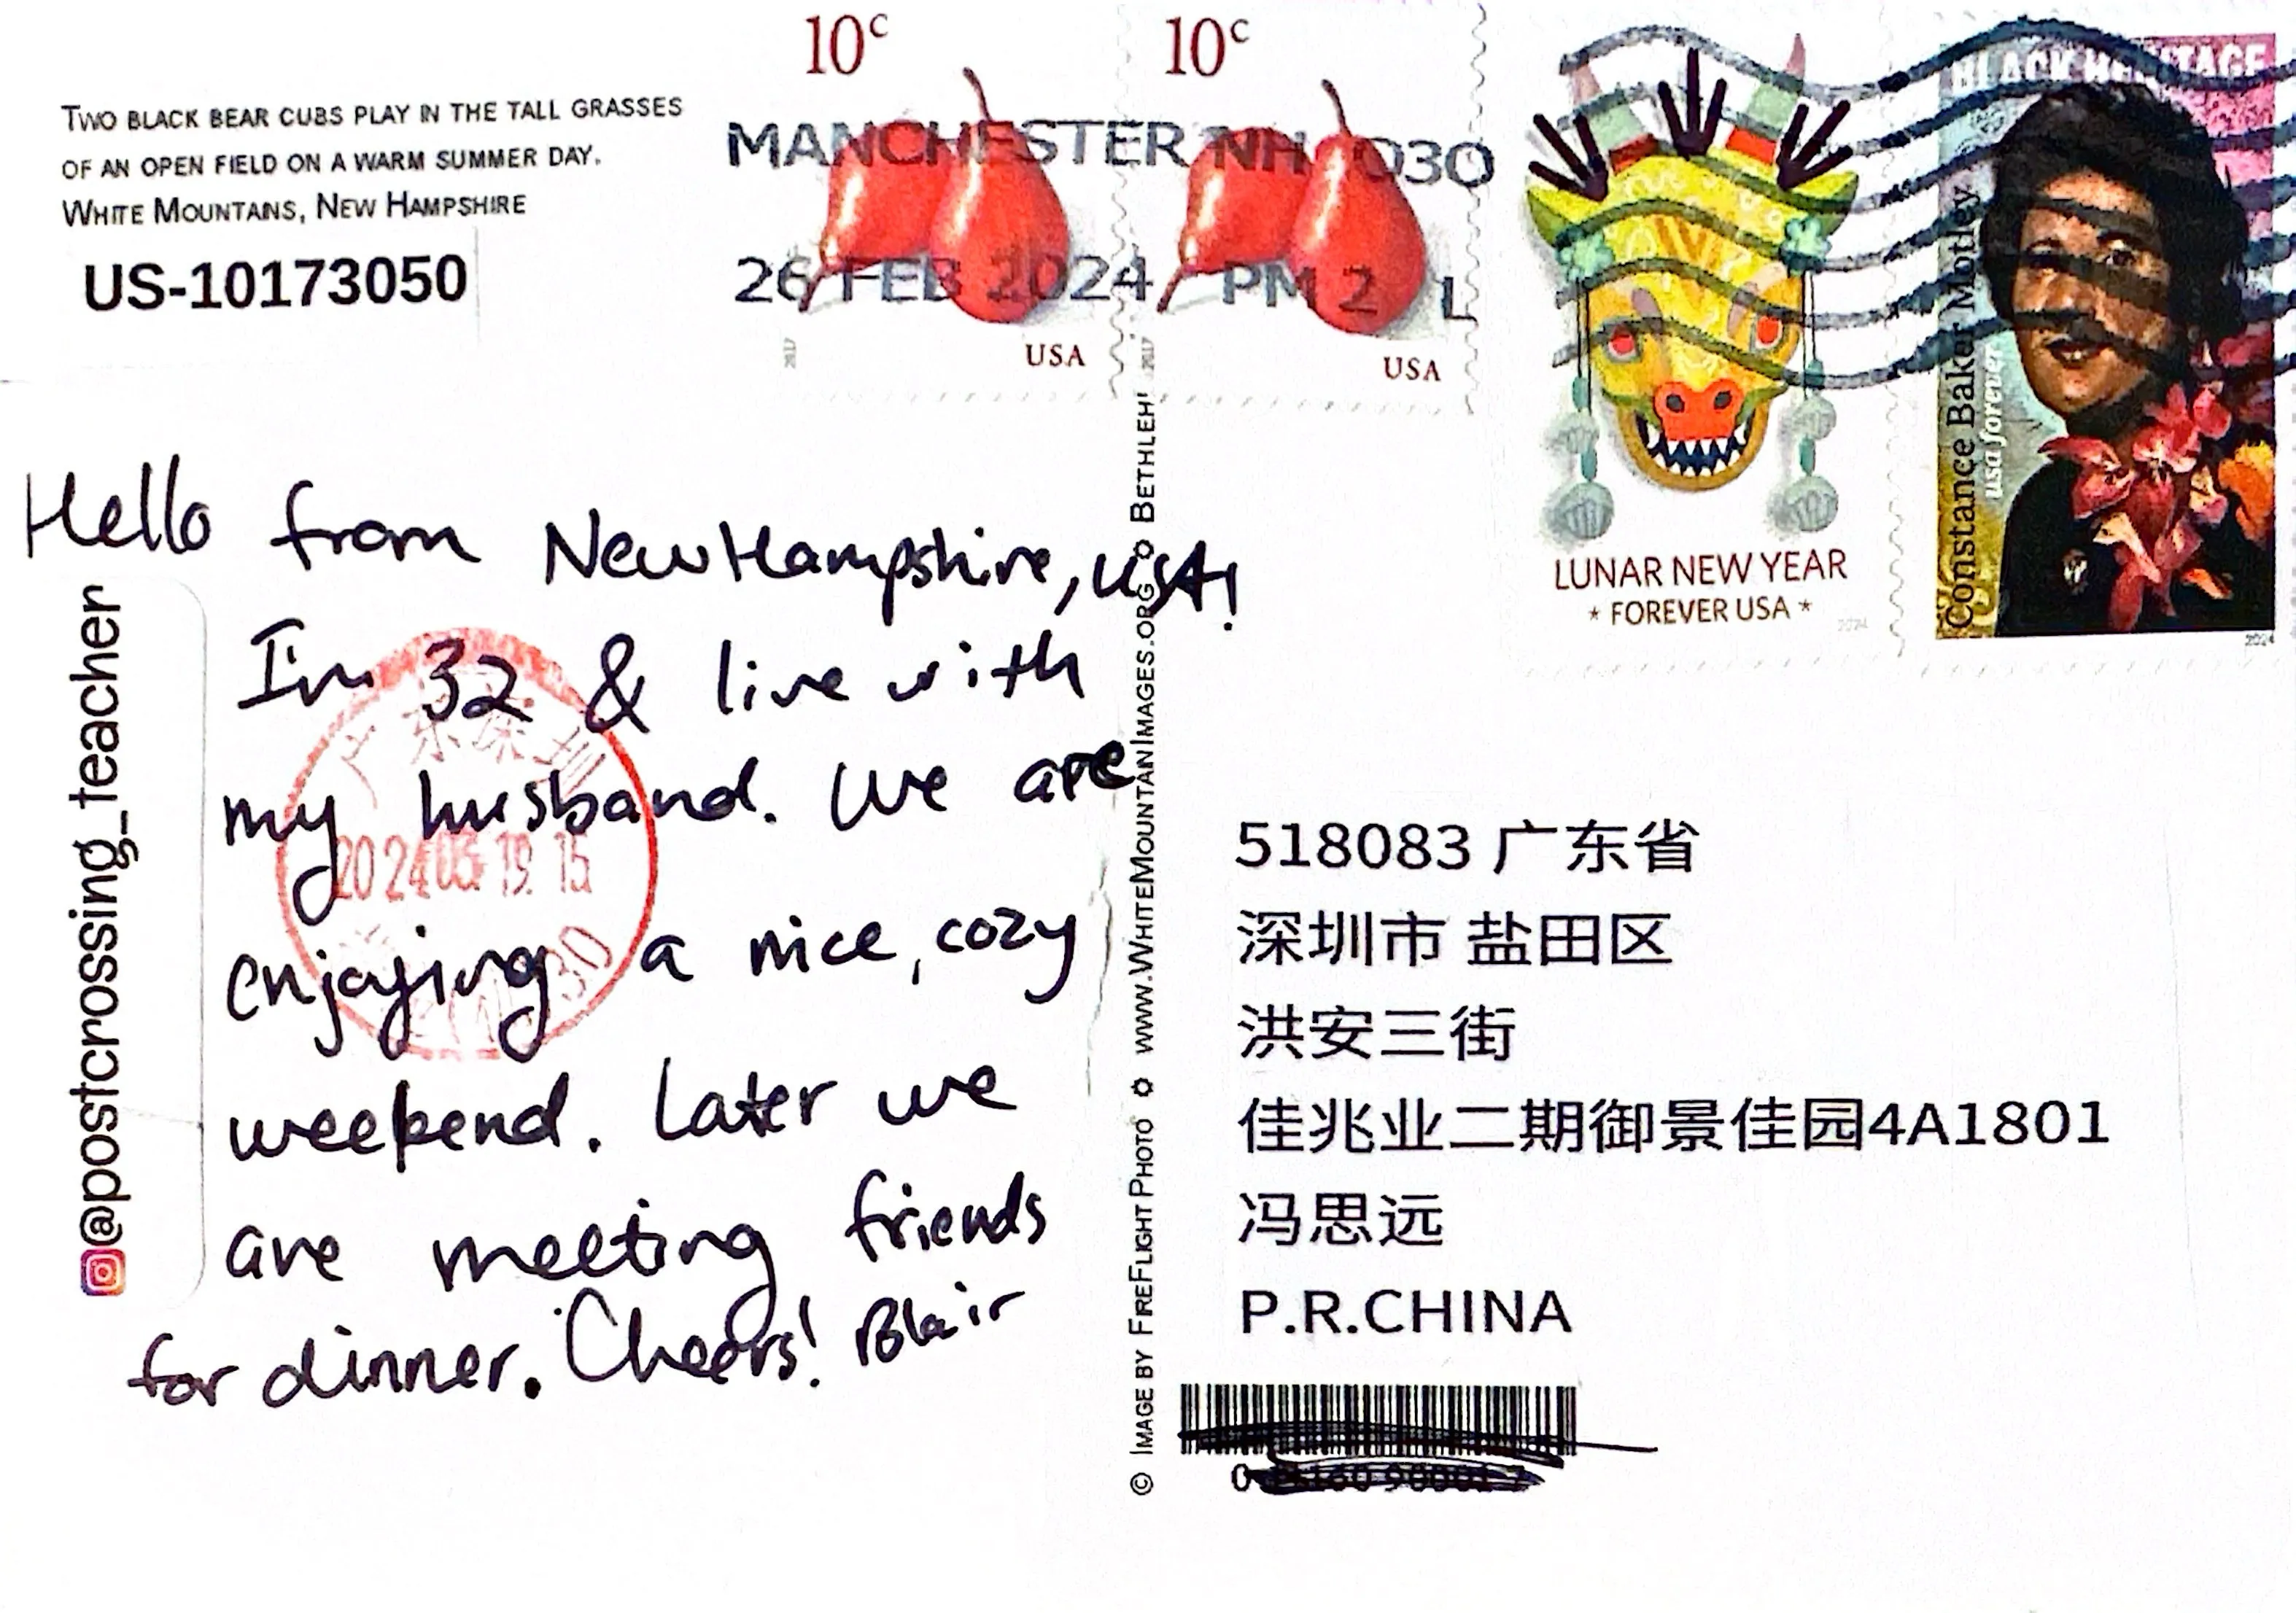 TWO BLACK BEAR CUBS PLAY IN THE TALL GRASSES
OF AN OPEN FIELD ON A WARM SUMMER DAY.
WHITE MOUNTAINS, NEW HAMPSHIRE
US-10173050
10c
USA
2017
10c
USA
2017
MANCHESTER NH 030
26 FEB 2024 PM 2 L
LUNAR NEW YEAR
* FOREVER USA *
2024
BLACK HERITAGE
Constance Baker Motley
usa forever
2024
Hello from New Hampshire, USA!
I'm 32 & live with
my husband. We are
enjoying a nice, cozy
weekend. Later we
are meeting friends
for dinner. Cheers! Blair
@postcrossing_teacher
广东深圳
2024 03 19 15
© IMAGE BY FIREFLIGHT PHOTO ✿ WWW.WHITEMOUNTAINIMAGES.ORG ✿ BETHLEH
518083 广东省
深圳市 盐田区
洪安三街
佳兆业二期御景佳园4A1801
冯思远
P.R.CHINA